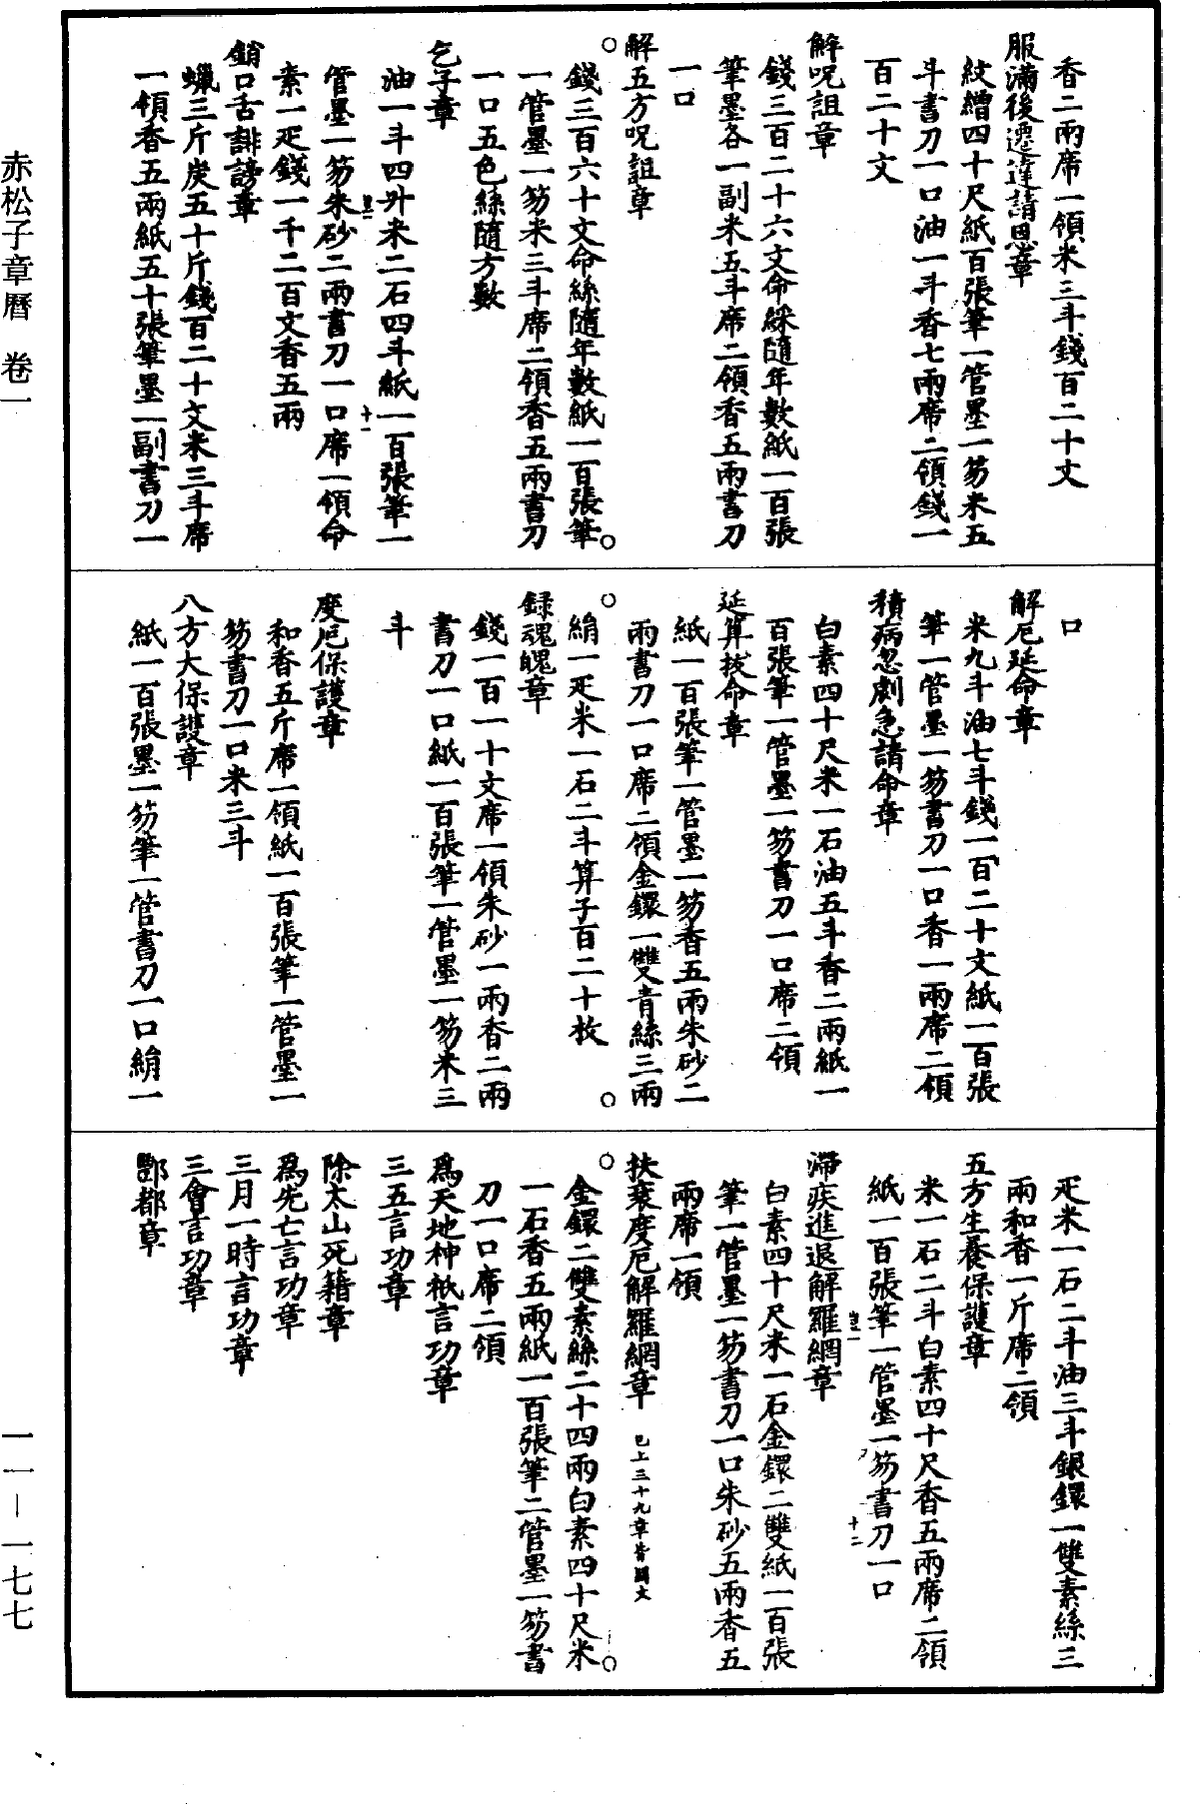 香二兩席一領米三斗錢百二十文
服滿後遷達請恩章
紋繒四十尺紙百張筆一管墨一笏米五
斗書刀一口油一斗香七兩席二領錢一
百二十文
解呪詛章
錢三百二十六文命綵隨年數紙一百張
筆墨各一副米五斗席二領香五兩書刀
一口
解五方呪詛章
錢三百六十文命絲隨年數紙一百張筆
一管墨一笏米三斗席二領香五兩書刀
一口五色絲隨方數
乞子章
油一斗四升米二石四斗紙一百張筆一
管墨一笏朱砂二兩書刀一口席一領命
素一疋錢一千二百文香五兩
銷口舌誹謗章
蠟三斤炭五十斤錢百二十文米三斗席
一領香五兩紙五十張筆墨一副書刀一
口
解厄延命章
米九斗油七斗錢一百二十文紙一百張
筆一管墨一笏書刀一口香一兩席二領
積病忽劇急請命章
白素四十尺米一石油五斗香二兩紙一
百張筆一管墨一笏書刀一口席二領
延算拔命章
紙一百張筆一管墨一笏香五兩朱砂二
兩書刀一口席二領金鐶一雙青絲三兩
絹一疋米一石二斗算子百二十枚
録魂魄章
錢一百一十文席一領朱砂一兩香二兩
書刀一口紙一百張筆一管墨一笏米三
斗
度厄保護章
和香五斤席一領紙一百張筆一管墨一
笏書刀一口米三斗
八方大保護章
紙一百張墨一笏筆一管書刀一口絹一
疋米一石二斗油三斗銀鐶一雙素絲三
兩和香一斤席二領
五方生養保護章
米一石二斗白素四十尺香五兩席二領
紙一百張筆一管墨一笏書刀一口
滯疾進退解羅網章
白素四十尺米一石金鐶二雙紙一百張
筆一管墨一笏書刀一口朱砂五兩香五
兩席一領
扶衰度厄解羅網章 已上三十九章皆闕文
金鐶二雙素絲二十四兩白素四十尺米
一石香五兩紙一百張筆二管墨一笏書
刀一口席二領
爲天地神祇言功章
三五言功章
除太山死籍章
爲先亡言功章
三月一時言功章
三會言功章
酆都章
赤松子章曆 卷一
一一—一七七
十一
十二